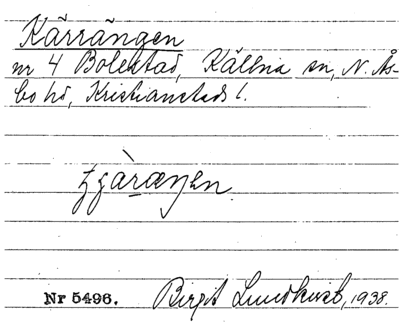 Kärrängen
nr 4 Bolestad, Källna sn, N. Ås-
bo hd, Kristianstads l.
Nr 5496. Birgit Lundkvist, 1938.